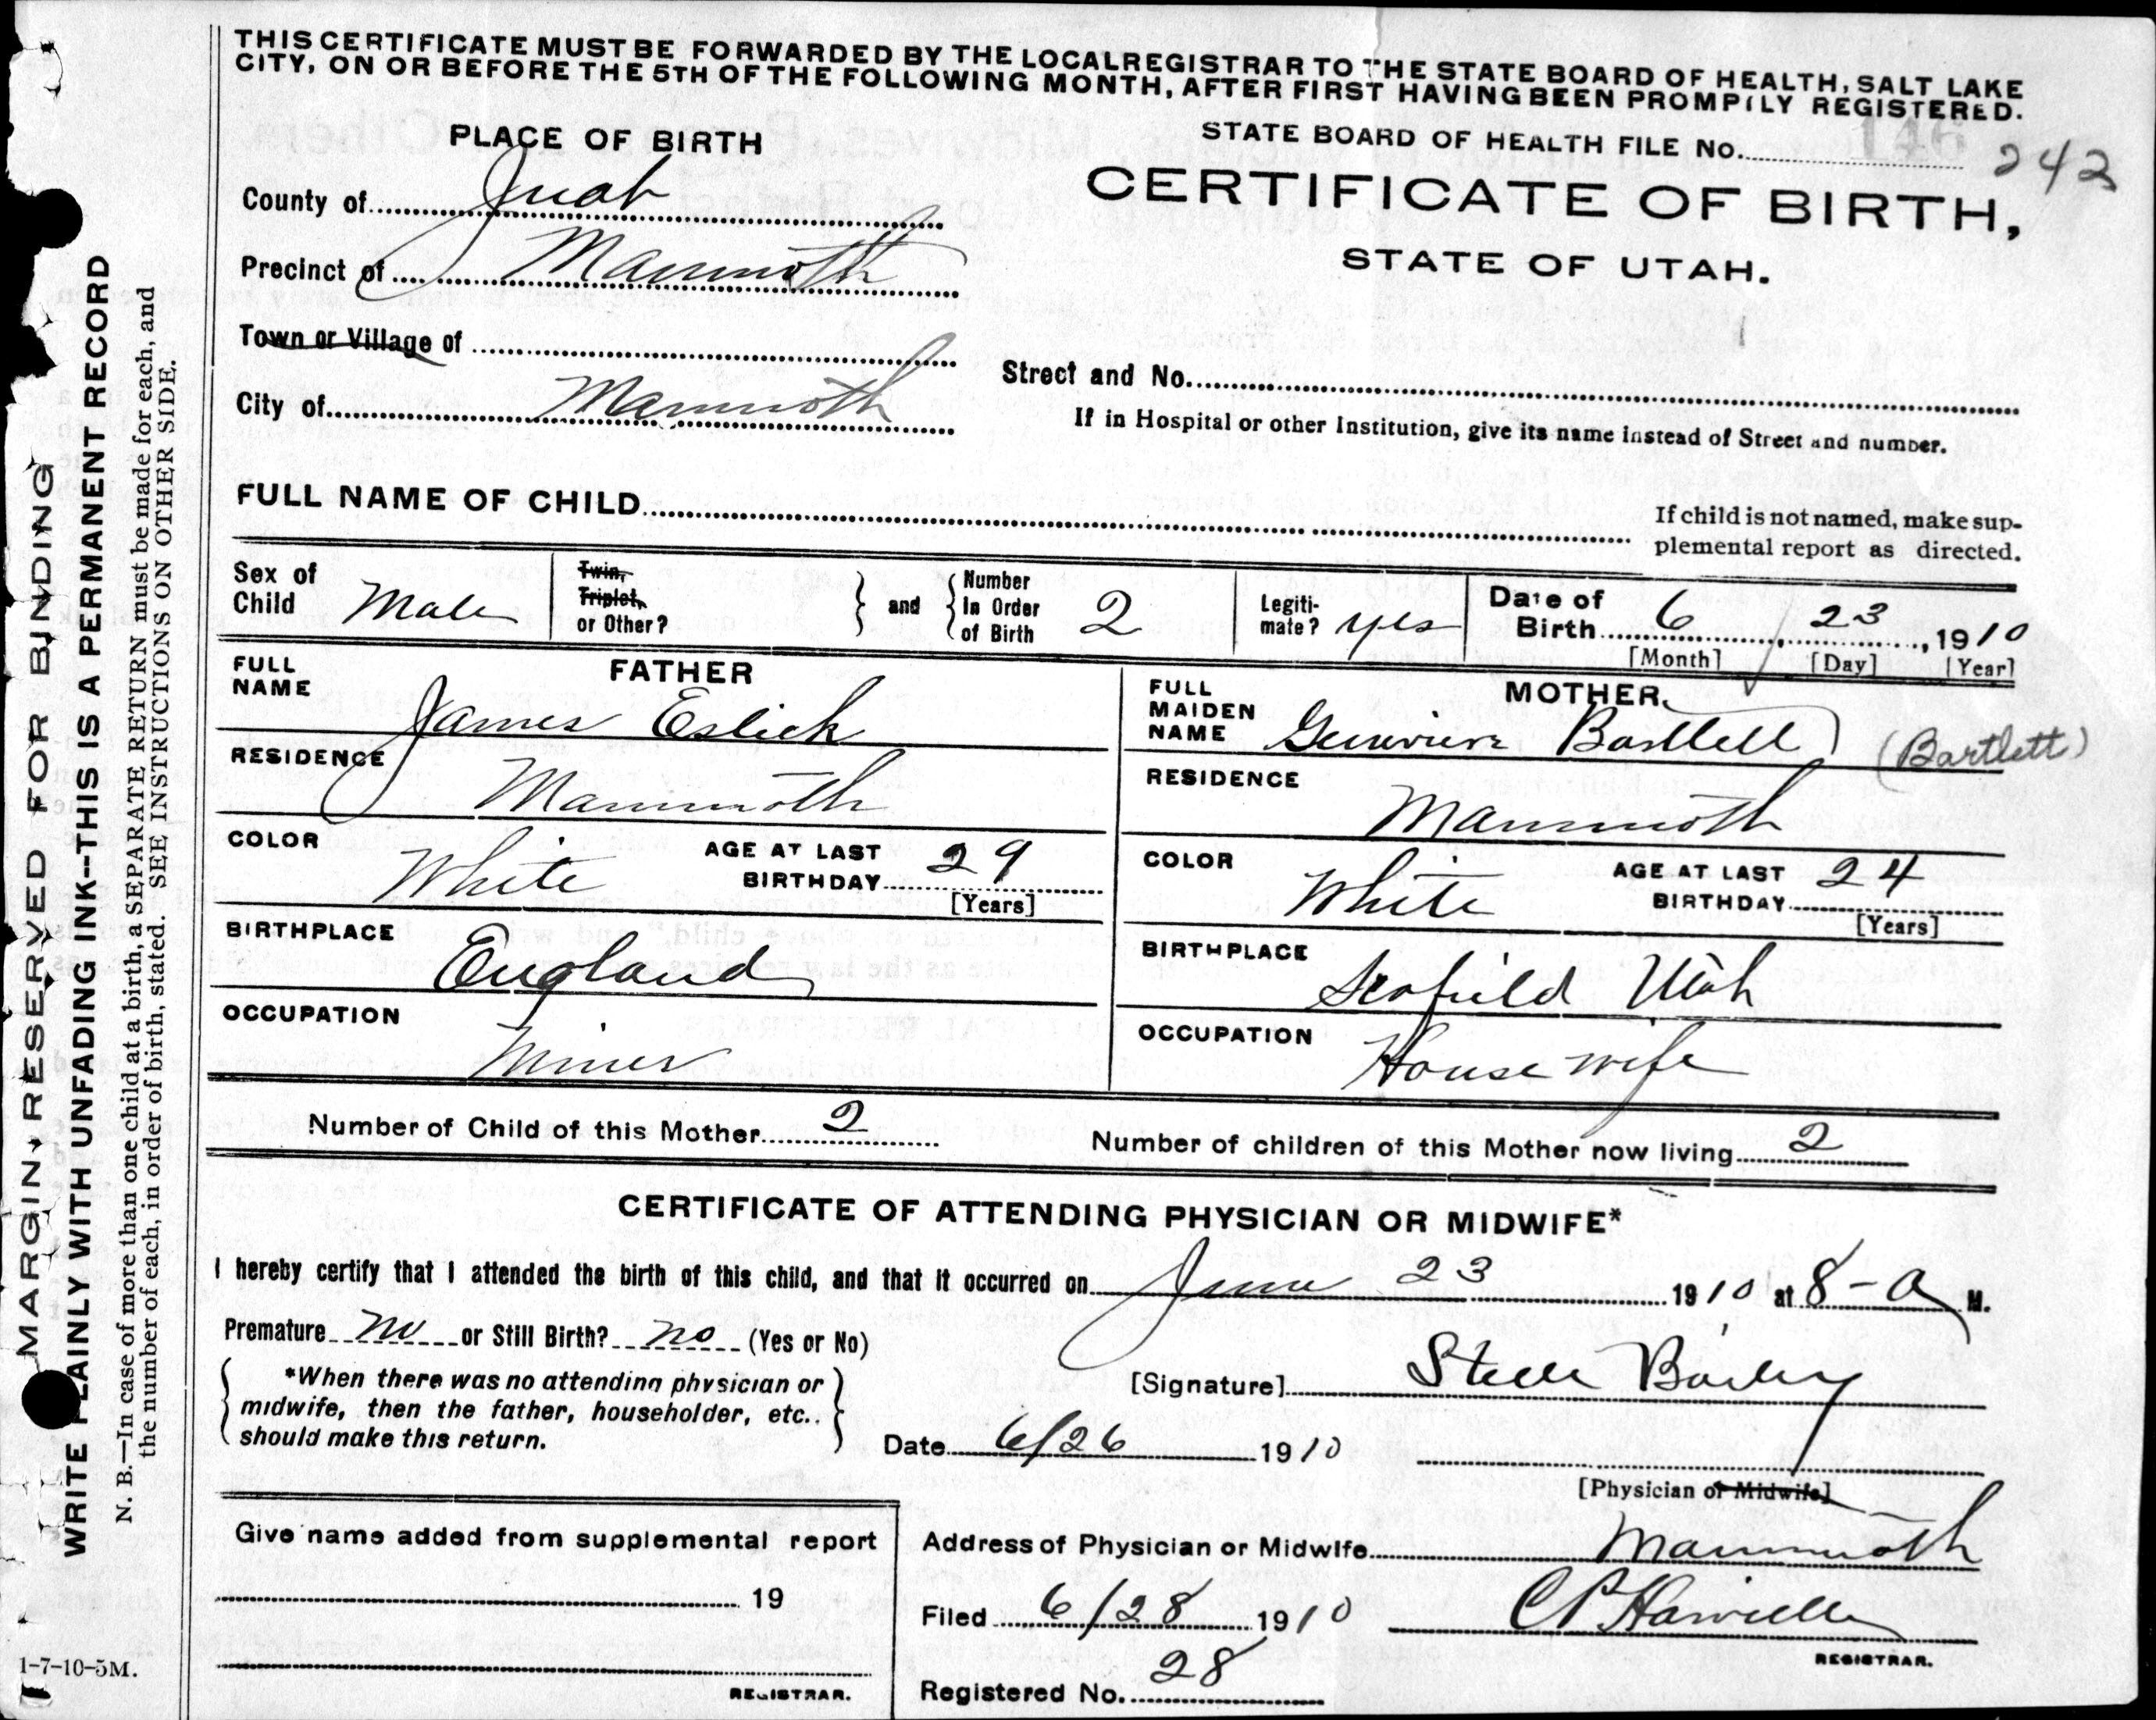 THIS CERTIFICATE MUST BE FORWARDED BY THE LOCAL REGISTRAR TO THE STATE BOARD OF HEALTH, SALT LAKE
CITY, ON OR BEFORE THE 5TH OF THE FOLLOWING MONTH, AFTER FIRST HAVING BEEN PROMPTLY REGISTERED.
PLACE OF BIRTH
STATE BOARD OF HEALTH FILE No. 146 242
County of Juab
CERTIFICATE OF BIRTH,
STATE OF UTAH.
Precinct of Mammoth
Town or Village of
Street and No.
City of Mammoth
If in Hospital or other Institution, give its name instead of Street and number.
FULL NAME OF CHILD
If child is not named, make sup-
plemental report as directed.
Sex of Child Male
Twin, Triplet, or Other?
and
Number in Order of Birth 2
Legiti-mate? yes
Date of Birth 6 23, 1910
[Month] [Day] [Year]
FATHER
FULL NAME James Eslick
RESIDENCE Mammoth
COLOR White
AGE AT LAST BIRTHDAY 29
[Years]
BIRTHPLACE England
OCCUPATION Miner
MOTHER
FULL MAIDEN NAME Genevieve Bartlett (Bartlett)
RESIDENCE Mammoth
COLOR White
AGE AT LAST BIRTHDAY 24
[Years]
BIRTHPLACE Scofield Utah
OCCUPATION House wife
Number of Child of this Mother 2
Number of children of this Mother now living 2
CERTIFICATE OF ATTENDING PHYSICIAN OR MIDWIFE*
I hereby certify that I attended the birth of this child, and that it occurred on June 23 1910 at 8-a M.
Premature no or Still Birth? no (Yes or No)
*When there was no attending physician or
midwife, then the father, householder, etc..
should make this return.
[Signature] Steele Bailey
Date 6/26 1910
[Physician or Midwife]
Give name added from supplemental report
19
REGISTRAR.
Address of Physician or Midwife Mammoth
Filed 6/28 1910
C P
REGISTRAR.
Registered No. 28
1-7-10-5M.
MARGIN RESERVED FOR BINDING
WRITE PLAINLY WITH UNFADING INK--THIS IS A PERMANENT RECORD
N. B.—In case of more than one child at a birth, a SEPARATE RETURN must be made for each, and
the number of each, in order of birth, stated. SEE INSTRUCTIONS ON OTHER SIDE.